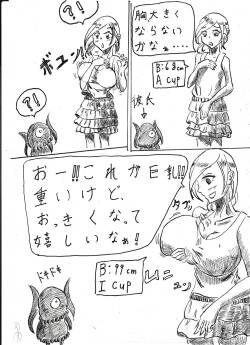 胸大きく
ならない
かなぁ....
B:68cm
A cup
彼氏
?!
ボユン!
?!
おー!!これが巨乳!!
重いけど、
おっきくなって
嬉しいなぁ!
タプ
ドキドキ
B:99cm
I cup